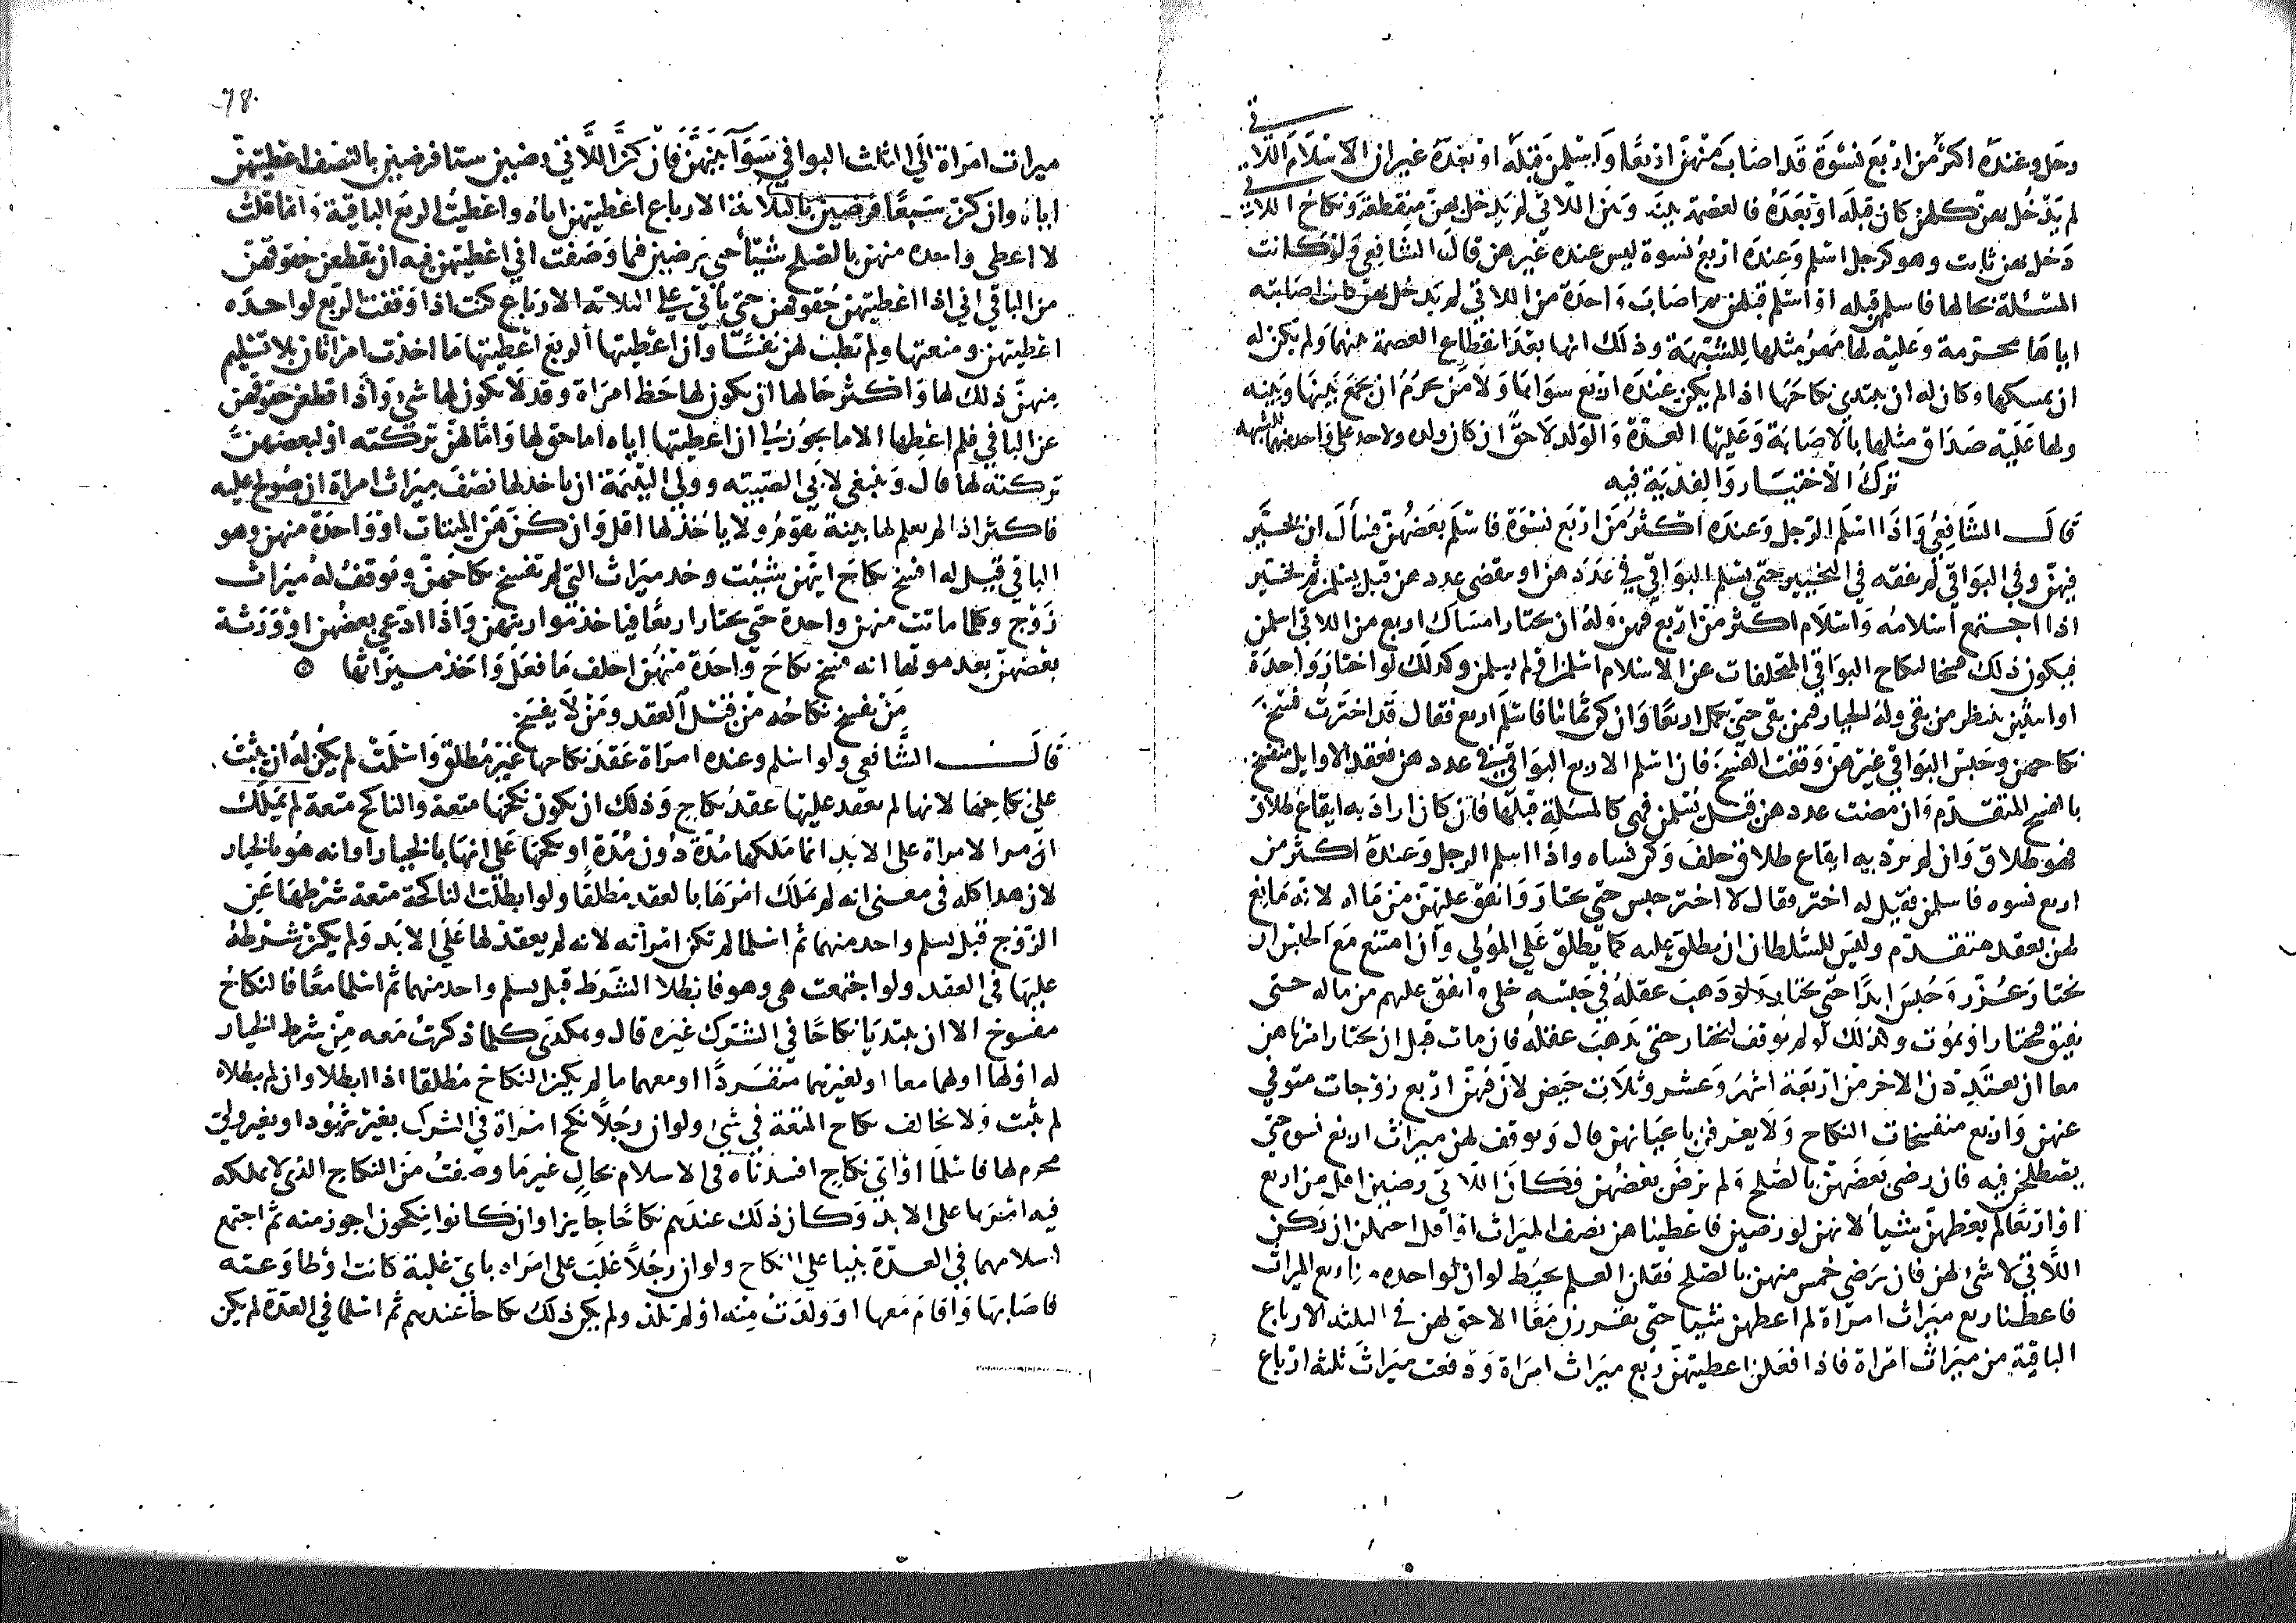 رجل وعنده اكثر من اربع نسوة قد اصاب منهن اربعا واسلمن قبله او بعده غير ان الاسلام اللاتي
لم يدخل بهن كلهن كان قبله او بعده فالعصمة بينه وبين اللاتي لم يدخل بهن منقطعة ونكاح اللاتي
دخل بهن ثابت وهو كرجل اسلم وعنده اربع نسوة ليس عنده غيرهن قال الشافعي ولو كانت
المسئلة بحالها فاسلم قبله او اسلم قبلهن ثم اصاب واحدة من اللاتي لم يدخل بهن كان اصابته
اياها محرمة وعليه لها مهر مثلها للشبهة وذلك انها بعد انقطاع العصمة بينهما ولم يكن له
ان يمسكها وكان له ان يبتدي نكاحها اذا لم يكن عنده اربع سواها ولا من يحرم ان يجمع بينها وبينه
ولها عليه صداق مثلها بالاصابة وعليها العدة والولد لاحق ان كان ولد ولا حد على واحد منهما للشبهة
ترك الاختيار والفدية فيه
قال الشافعي واذا اسلم الرجل وعنده اكثر من اربع نسوة فاسلم بعضهن فسأل ان يخير
فيهن وفي البواقي لم نقفه في التخيير حتى يسلم البواقي في عددهن او تنقضي عددهن قبل يسلمن ثم يخير
اذا اجتمع اسلامه واسلام اكثر من اربع فهن وله ان يختار امساك اربع من اللاتي اسلمن
فيكون ذلك فسخا لنكاح البواقي المتخلفات عن الاسلام اسلمن او لم يسلمن وكذلك لو اختار واحدة
او اثنتين ينتظر من بقي وله الخيار فيمن بقي حتى يكمل اربعا وان كن ثمانيا فاسلم اربع فقال قد اخترت فسخ
نكاحهن وحبس البواقي غيرهن وقفت الفسخ فان اسلم الاربع البواقي في عددهن فعقد الاوايل منفسخ
بالفسخ المتقدم وان مضت عددهن قبل يسلمن فهي كالمسئلة قبلها فان كان اراد به ايقاع طلاق
فهو طلاق وان لم يرد به ايقاع طلاق حلف وكن نساه واذا اسلم الرجل وعنده اكثر من
اربع نسوه فاسلمن فقيل له اختر فقال لا اختر حبس حتى يختار وانفق عليهن من ماله لانه مانع
لهن بعقد متقدم وليس للسلطان ان يطلق عليه كما يطلق على المولي وان امتنع مع الحبس ان
يختار عزر وحبس ابدا حتى يختار ولو ذهب عقله في حبسه خلي وانفق عليهم من ماله حتى
يفيق فيختار او يموت وكذلك لو لم يوقف ليختار حتى يذهب عقله فان مات قبل ان يختار امرناهن
معا ان يعتددن الاخر من اربعة اشهر وعشر وثلاث حيض لان فيهن اربع زوجات متوفي
عنهن واربع منفسخات النكاح ولا يعرفن باعيانهن قال ويوقف لهن ميراث اربع نسوه حتى
يصطلحن فيه فان رضي بعضهن بالصلح ولم يرض بعضهن فكان اللاتي رضين اقل من اربع
او اربعا لم يعطهن شيأ لانهن لو رضين فاعطيناهن نصف الميراث او اقل احتمل ان يكن
اللاتي لا شئ لهن فان رضي خمس منهن بالصلح فقلن العلم يحيط لو ان لواحدة منا ربع الميراث
فاعطنا ربع ميراث امراة لم اعطهن شيئا حتى يقررن معا الا حق لهن في الثلثة الارباع
الباقية من ميراث امراة فاذا فعلن اعطيتهن ربع ميراث امراة ودفعت ميراث ثلثه ارباع
78
ميراث امراة الى الثلث البواقي سوآ بينهن فان كن اللاتي رضين ستا فرضين بالنصف اعطيتهن
اياه وان كن سبعا فرضين بالثلاثة الارباع اعطيتهن اياه واعطيت الربع الباقية وانما قلت
لا اعطي واحده منهن بالصلح شيئا حتى يرضين فيما وصفت اني اعطيتهن فيه ان يقطعن حقوقهن
من الباقي اني اذا اعطيتهن حقوقهن حتى يأتي على الثلاثة الارباع كنت اذا وقفت الربع لواحده
اعطيتهن ومنعتها ولم تطب لهن نفسا وان اعطيتها الربع اعطيتها ما اخذت امراتان بلا تسليم
منهن ذلك لها واكثر حالها ان يكون لها حظ امراة وقد لا يكون لها شئ واذا قطعن حقوقهن
عن الباقي فلم اعطها الا ما يجوز لي ان اعطيتها اياه اما حق لها واما لهن تركته او لبعضهن
تركته لها قال وينبغي لابي الصبيته وولي اليتيمة ان ياخذ لها نصف ميراث امراة ان صولح عليه
فاكثر اذا لم يعلم لها بينة تقوم ولا ياخذ لها اقل وان كن هن الميتات او واحدة منهن وهو
الباقي قيل له افسخ نكاح ايتهن شئت وخذ ميراث التي لم تفسخ نكاحهن ونوقف له ميراث
زوج وكلما ماتت منهن واحدة حتى يختار اربعا فياخذ مواريثهن واذا ادعي بعضهن او ورثة
بعضهن بعد موتها انه فسخ نكاح واحدة منهن احلف ما فعل واخذ ميراثها ٥
من يفسخ نكاحه من قبل العقد ومن لا يفسخ
قال الشافعي ولو اسلم وعنده امراة عقد نكاحها غير مطلق واسلمت لم يكن له ان يثبت
على نكاحها لانها لم يعقد عليها عقد نكاح وذلك ان يكون نكحها متعة والناكح متعة لم يملك
امر الامراة على الابد انما ملكها مدة دون مدة او نكحها على انها بالخيار او انه هو بالخيار
لان هذا كله في معنى انه لم يملك امرها بالعقد مطلقا ولو ابطلت الناكحة متعة شرطها عن
الزوج قبل يسلم واحد منهما ثم اسلما لم تكن امرأته لانه لم يعقد لها على الابد ولم يكن شرطه
عليها في العقد ولو اجتمعت هي وهو فابطلا الشرط قبل يسلم واحد منهما ثم اسلما معا فالنكاح
مفسوخ الا ان يبتديا نكاحا في الشرك غيره قال وهكذي كلما ذكرت معه من شرط الخيار
له او لها او لهما معا او لغيرهما منفردا او معهما ما لم يكن النكاح مطلقا اذا ابطلا وان لم يبطلاه
لم يثبت ولا يخالف نكاح المتعة في شئ ولو ان رجلا نكح امراة في الشرك بغير شهود او بغير ولي
محرم لها فاسلما او اي نكاح افسدناه في الاسلام بحال غير ما وصفت من النكاح الذي لا يملكه
فيه امرها على الابد وكان ذلك عندهم نكاحا جايزا وان كانوا ينكحون اجوز منه ثم اجتمع
اسلامهما في العدة ثبتا على النكاح ولو ان رجلا غلب على امراه باي غلبة كانت او طاوعته
فاصابها واقام معها او ولدت منه او لم تلد ولم يكن ذلك نكاحا عندهم ثم اسلما في العدة لم يكن